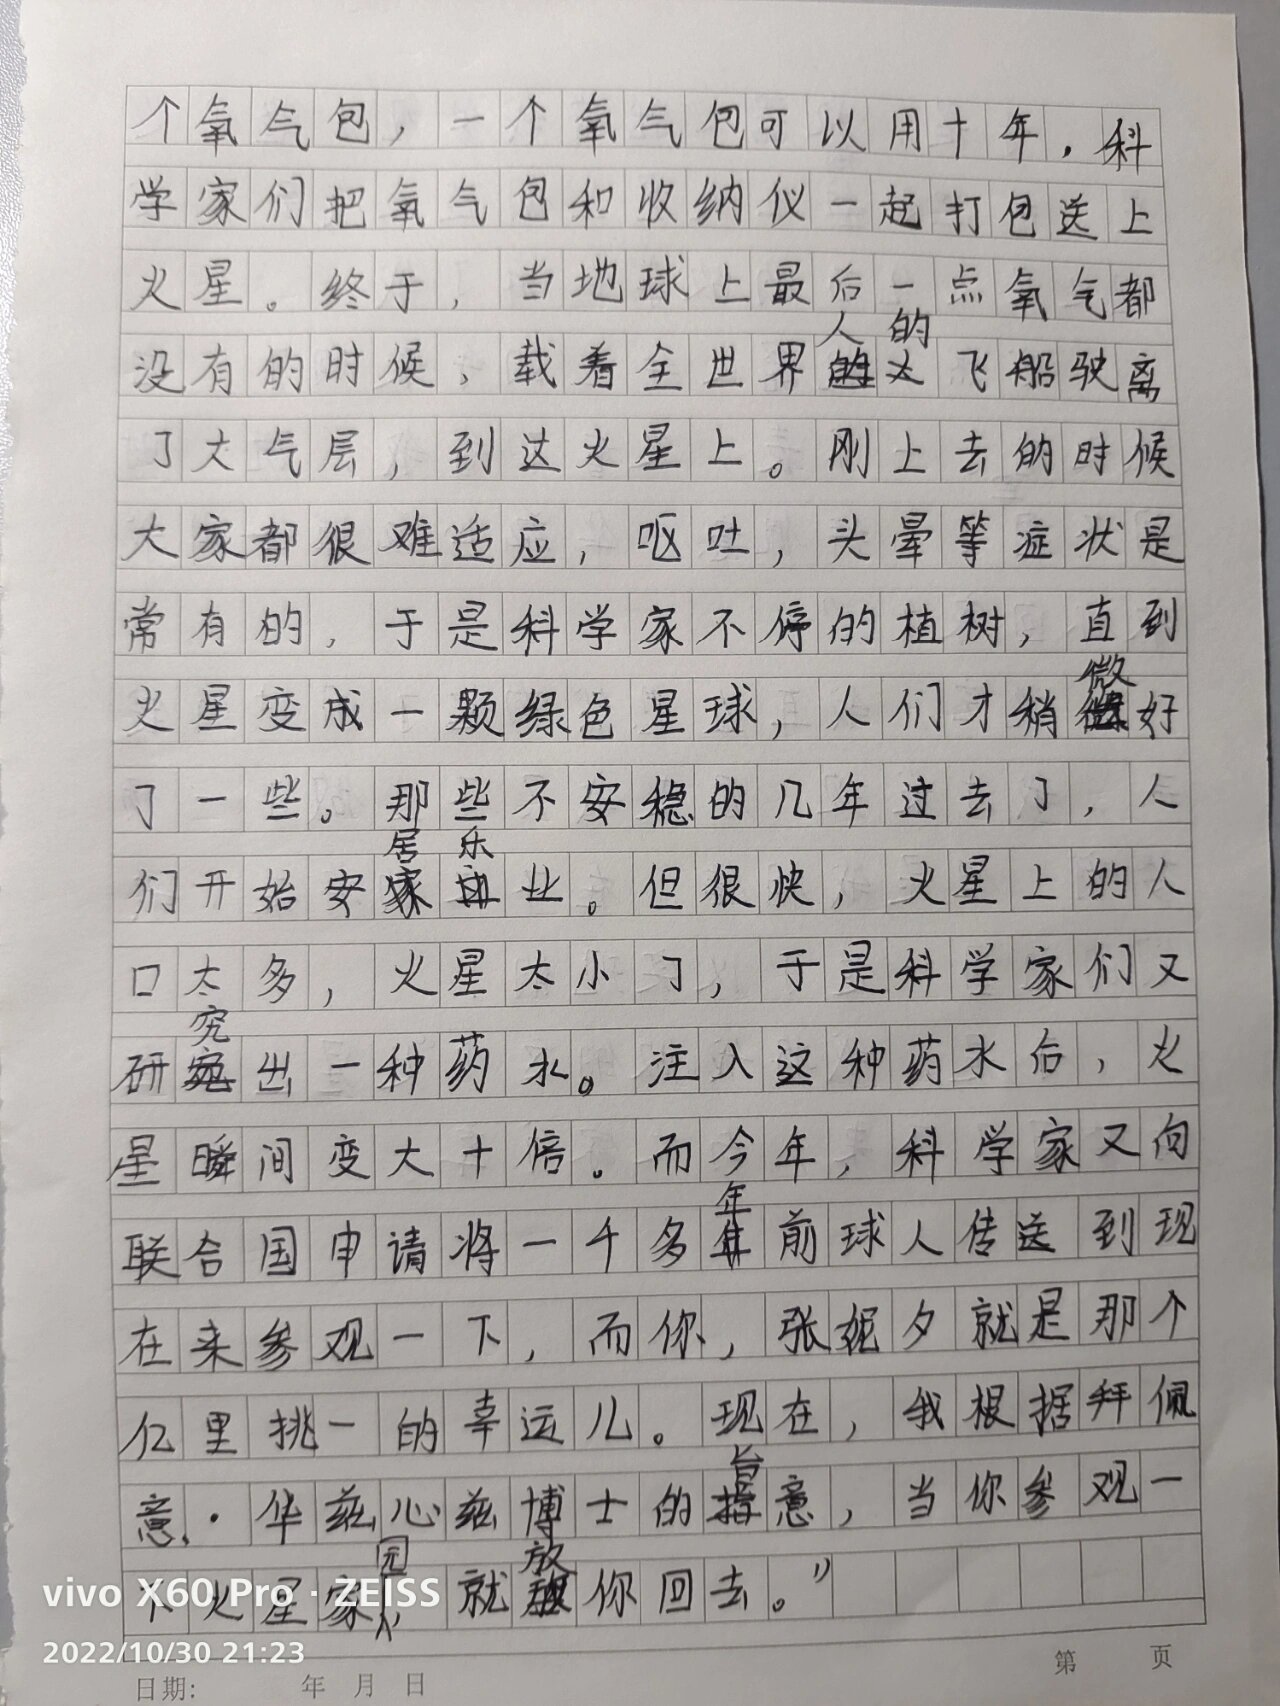 个氧气包，一个氧气包可以用十年，科
学家们把氧气包和收纳仪一起打包送上
火星。终于，当地球上最后一点氧气都
没有的时候，载着全世界人的飞船驶离
了大气层，到达火星上。刚上去的时候
大家都很难适应，呕吐，头晕等症状是
常有的，于是科学家不停的植树，直到
火星变成一颗绿色星球，人们才稍微好
了一些。那些不安稳的几年过去了，人
们开始安居乐业。但很快，火星上的人
口太多，火星太小了，于是科学家们又
研究出一种药水。注入这种药水后，火
星瞬间变大十倍。而今年，科学家又向
联合国申请将一千多年前球人传送到现
在来参观一下，而你，张妮夕就是那个
亿里挑一的幸运儿。现在，我根据拜佩
意·华兹心兹博士的旨意，当你参观一
下火星家园，就放你回去。”
vivo X60 Pro · ZEISS
2022/10/30 21:23
日期： 年 月 日
第 页